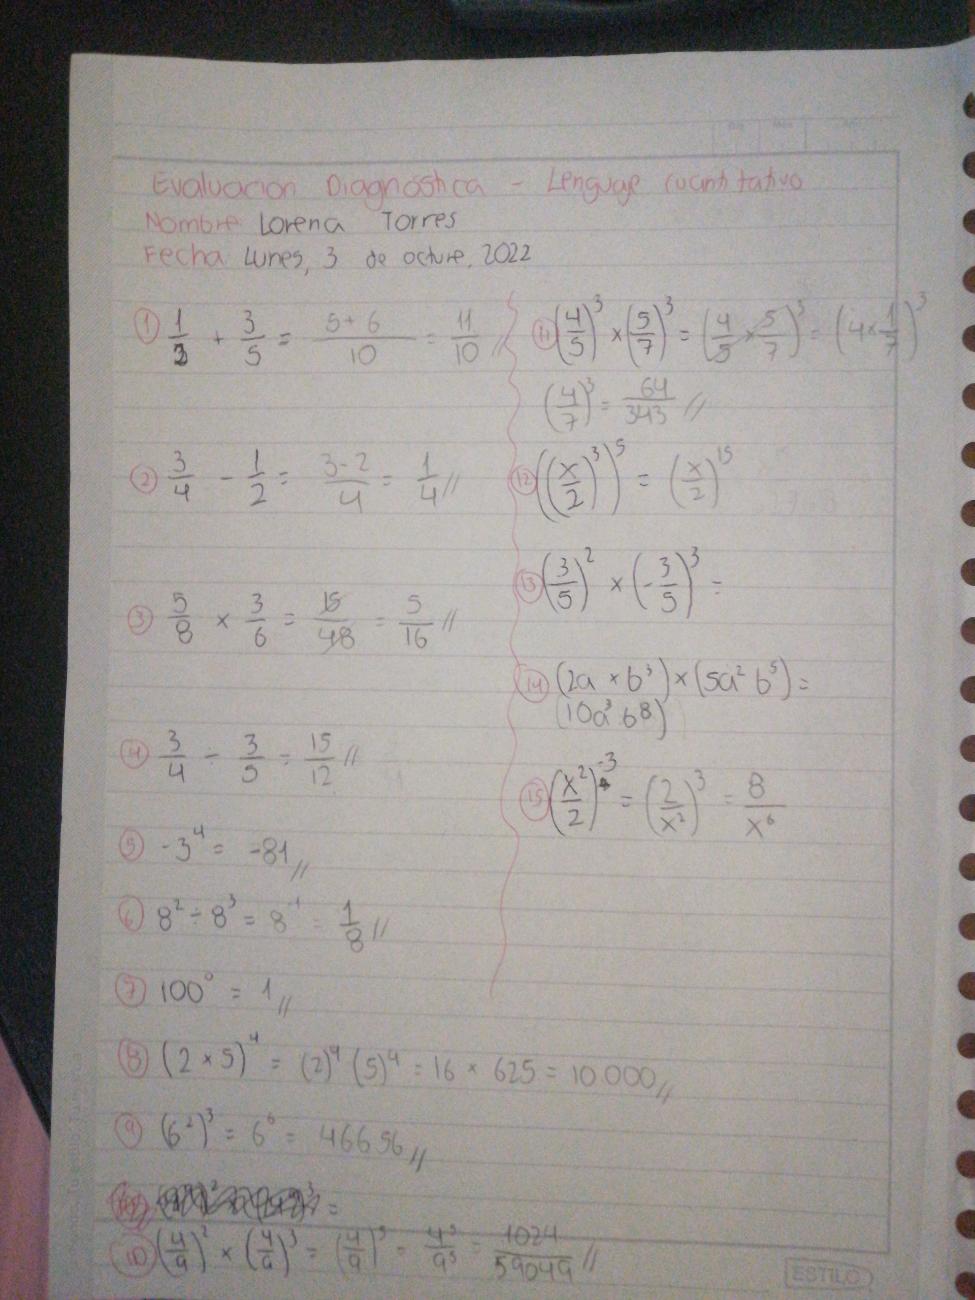 Evaluacion Diagnóstica - Lenguaje cuantitativo
Nombre Lorena Torres
Fecha Lunes, 3 de octure, 2022
① 1/2 + 3/5 = (5+6)/10 = 11/10 //
② 3/4 - 1/2 = (3-2)/4 = 1/4 //
③ 5/8 × 3/6 = 15/48 = 5/16 //
④ 3/4 ÷ 3/5 = 15/12 //
⑤ -3⁴ = -81 //
⑥ 8² ÷ 8³ = 8⁻¹ = 1/8 //
⑦ 100⁰ = 1 //
⑧ (2 × 5)⁴ = (2)⁴ (5)⁴ = 16 × 625 = 10.000 //
⑨ (6²)³ = 6⁶ = 46656 //
⑩ (4/9)² × (4/9)³ = (4/9)⁵ = 4⁵/9⁵ = 1024/59049 //
⑪ (4/5)³ × (5/7)³ = (4/5 × 5/7)³ = (4 × 1/7)³
(4/7)³ = 64/343 //
⑫ ((x/2)³)⁵ = (x/2)¹⁵
⑬ (3/5)² × (-3/5)³ =
⑭ (2a × b³) × (5a² b⁵) =
(10a³ b8)
⑮ (x²/2)⁻³ = (2/x²)³ = 8/x⁶
ESTILO